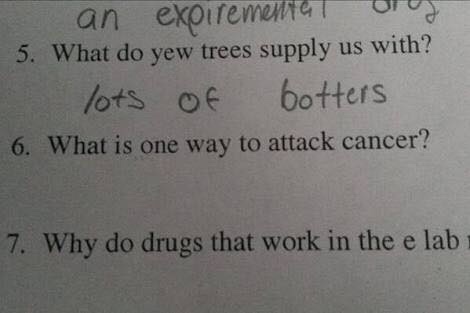 an expiremental drug
5. What do yew trees supply us with?
lots of botters
6. What is one way to attack cancer?
7. Why do drugs that work in the e lab